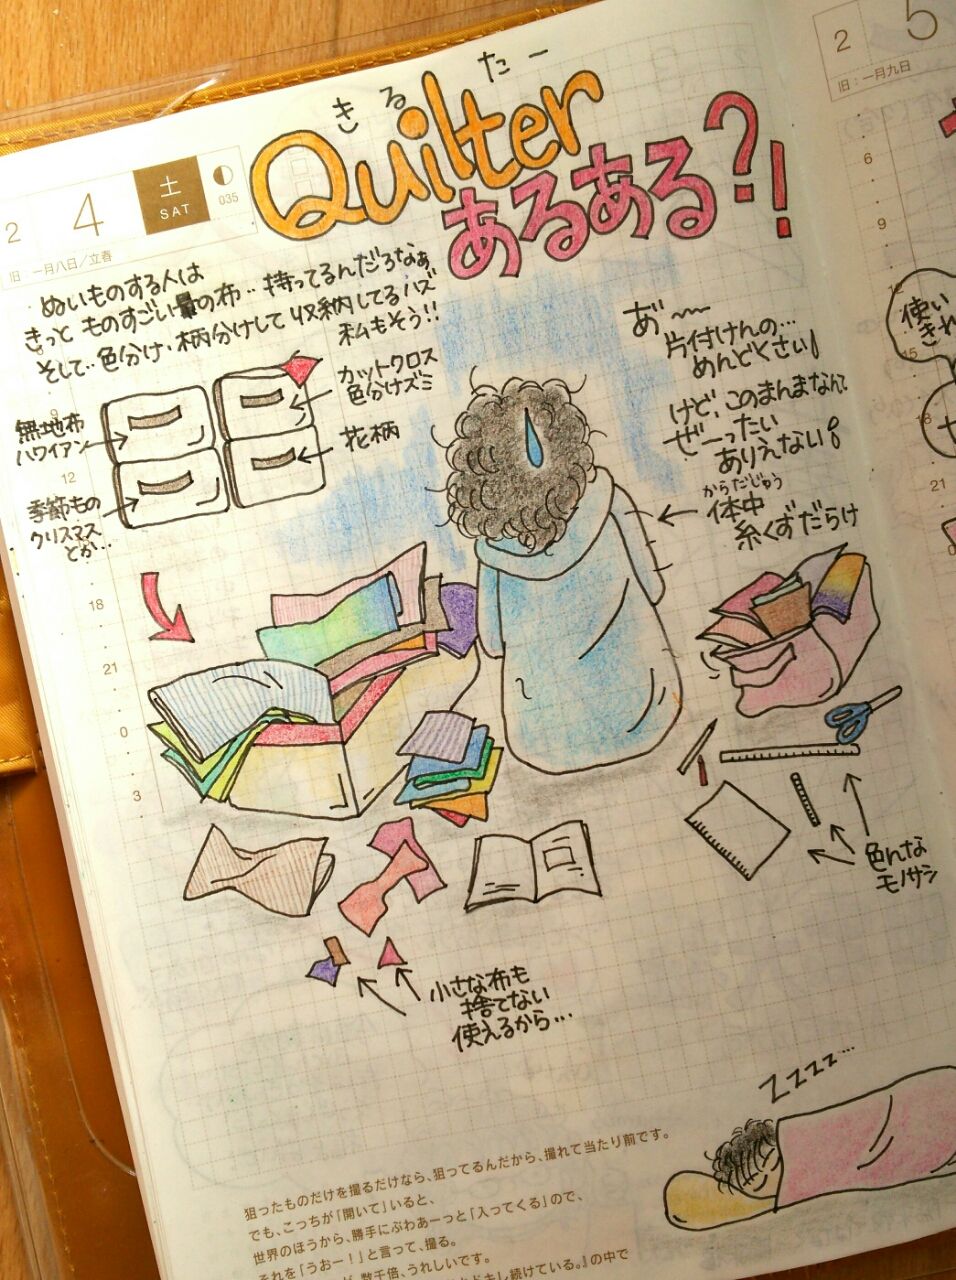 きるたー
Quilter
あるある?!
2 4 土 SAT 035
旧:一月八日/立春
ぬいものする人は
きっと ものすごい量の布‥持ってるんだろなぁ
そして‥色分け、柄分けして収納してるハズ
私もそう!!
無地布
ハワイアン
季節もの
クリスマス
とか…
カットクロス
色分けズミ
花柄
あ゛〜
片付けんの…
めんどくさい!
けど、このまんまなんて
ぜーったい
ありえない!
からだじゅう
体中
糸くずだらけ
12
18
21
0
3
色んな
モノサシ
小さな布も
捨てない
使えるから…
ZZZZ…
狙ったものだけを撮るだけなら、狙ってるんだから、撮れて当たり前です。
でも、こっちが「開いて」いると、
世界のほうから、勝手にぶわあーっと「入ってくる」ので、
それを「うおー!」と言って、撮る。
数千倍、うれしいです。
し続けている。』の中で
2 5
旧:一月九日
6
9
12
15
18
21
使い
きれ